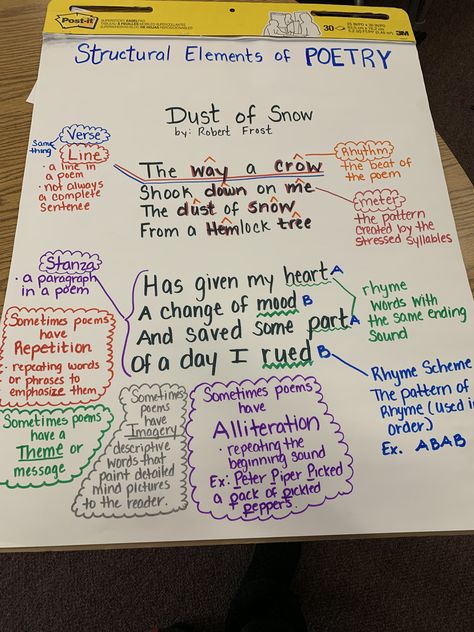 Post-it
SUPERSTICKY
30
3M
Structural Elements of POETRY
Dust of Snow
by: Robert Frost
Same
thing
Verse
Line
• a line in
a poem
• not always
a complete
Sentence
The way a crow
Shook down on me
The dust of snow
From a Hemlock tree
Rhythm
the beat of
the poem
meter
the pattern
created by the
stressed syllables
Stanza
• a paragraph
in a poem
Has given my heart A
A change of mood B
And saved some part A
Of a day I rued B
rhyme
Words with
the same ending
Sound
Rhyme Scheme
The pattern of
Rhyme (used in
order)
Ex. ABAB
Sometimes poems
have
Repetition
• repeating words
or phrases to
emphasize them
Sometimes poems
have a
Theme or
message
Sometimes
poems
have
Imagery
descriptive
words that
paint detailed
mind pictures
to the reader.
Sometimes poems
have
Alliteration
• repeating the
beginning sound
Ex: Peter Piper Picked
a pack of pickled
peppers.